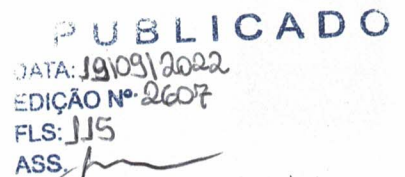 PUBLICADO
DATA: 19/09/2022
EDIÇÃO Nº 2607
FLS: 115
ASS.